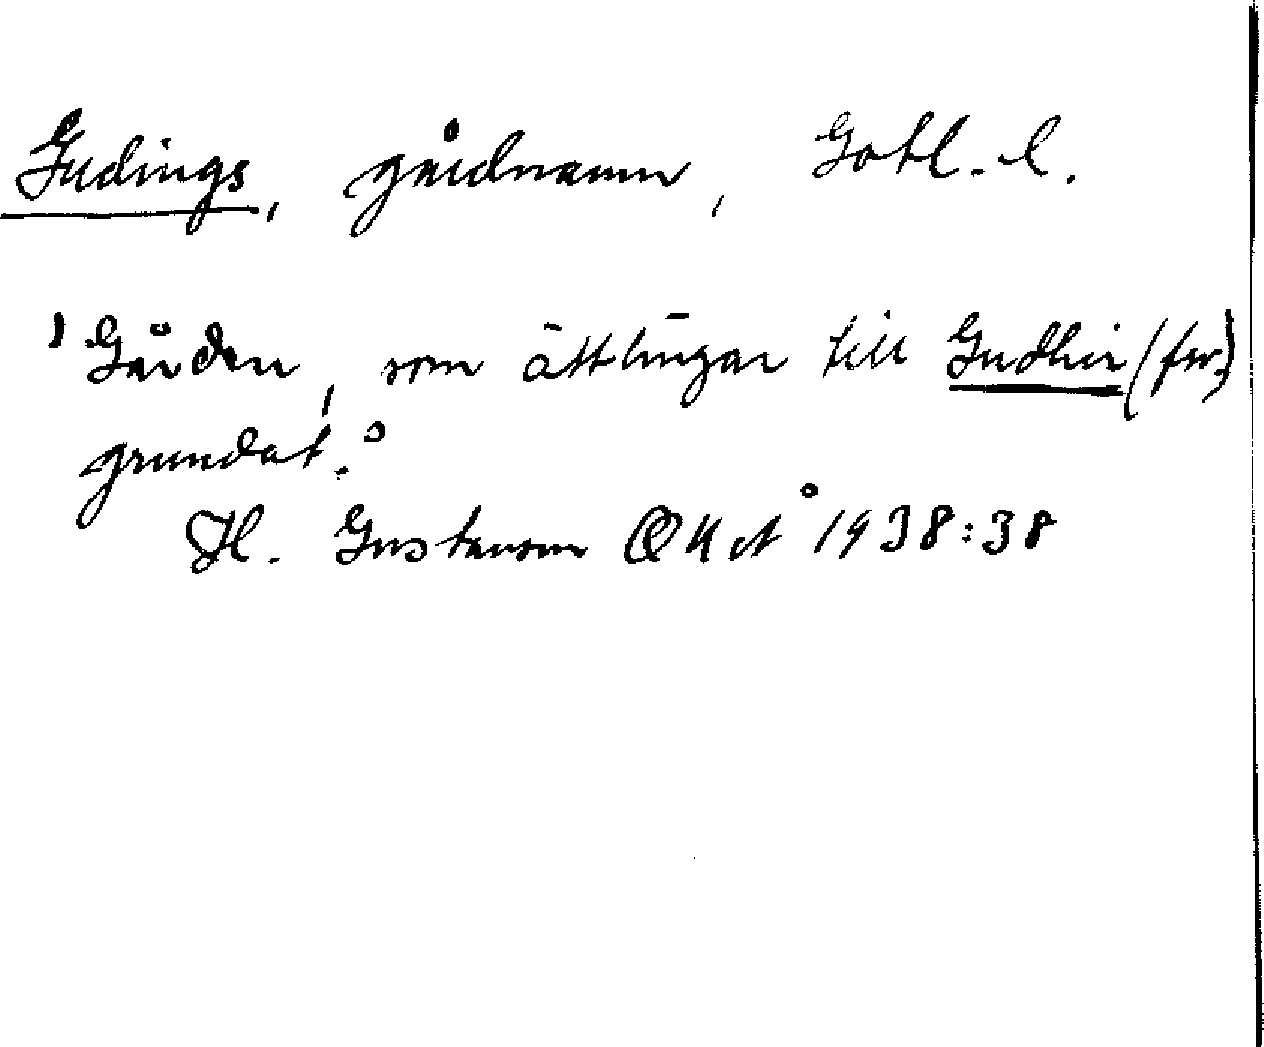 Gudings, gårdnamn, Gotl. l.
'Gården, som ättlingar till Gudhir (fsv.)
grundat.'
H. Gustavson GHÅ 1938:38